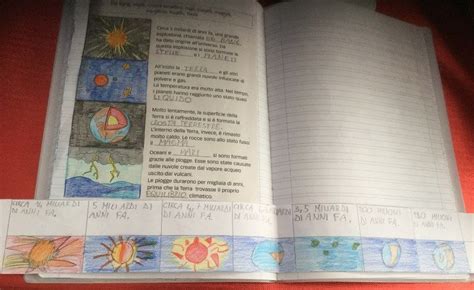 Circa 5 miliardi di anni fa, una grande
esplosione, chiamata BIG BANG,
ha dato origine all'universo. Da
questa esplosione si sono formate le
STELLE e i PIANETI
All'inizio la TERRA e gli altri
pianeti erano grandi nuvole infuocate di
polvere e gas.
La temperatura era molto alta. Nel tempo,
i pianeti hanno raggiunto uno stato quasi
LIQUIDO
Molto lentamente, la superficie della
terra si è raffreddata e si è formata la
CROSTA TERRESTRE.
L'interno della Terra, invece, è rimasto
molto caldo. Le rocce sono allo stato fuso:
il MAGMA.
Oceani e MARI si sono formati
grazie alle piogge. Esse sono state causate
dalle nuvole create dal vapore acqueo
uscito dai vulcani.
Le piogge durarono per migliaia di anni,
prima che la terra trovasse il proprio
EQUILIBRIO climatico.
CIRCA MILIARDI
DI ANNI FA.
5 MILIARDI DI
ANNI FA.
CIRCA 4, MILIARDI
DI ANNI FA.
CIRCA
DI ANNI FA.
3,5 MILIARDI
DI ANNI FA.
MILIONI
DI ANNI FA.
MILIONI
DI ANNI FA.